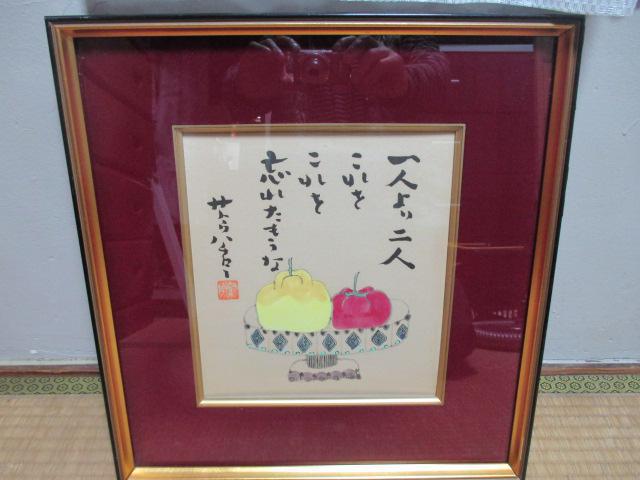 一人より二人
これを
これを
忘れたもうな
サトウハチロー